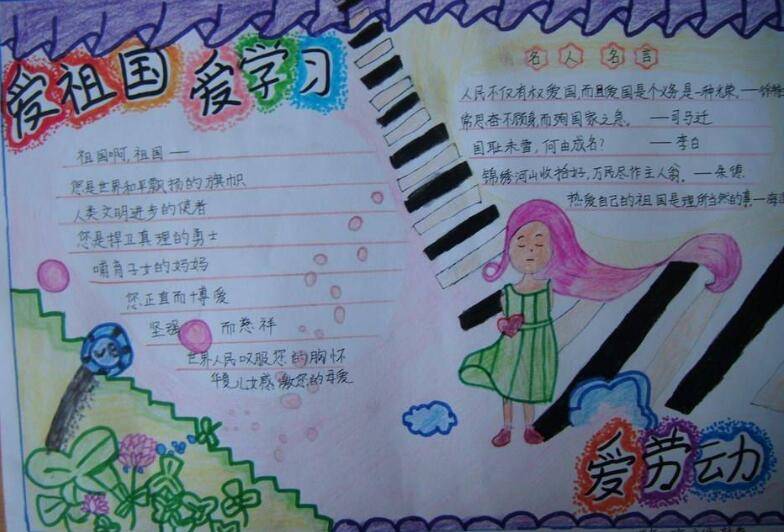 爱祖国 爱学习
祖国啊,祖国——
您是世界和平飘扬的旗帜
人类文明进步的使者
您是捍卫真理的勇士
哺育子女的妈妈
您正直而博爱
坚强 而慈祥
世界人民叹服您的胸怀
华夏儿女感激您的母爱
名人名言
人民不仅有权爱国,而且爱国是个义务,是一种光荣。——徐特
常思奋不顾身,而殉国家之急。 ——司马迁
国耻未雪,何由成名? ——李白
锦绣河山收拾好,万民尽作主人翁。——朱德
热爱自己的祖国是理所当然的事——海
爱劳动